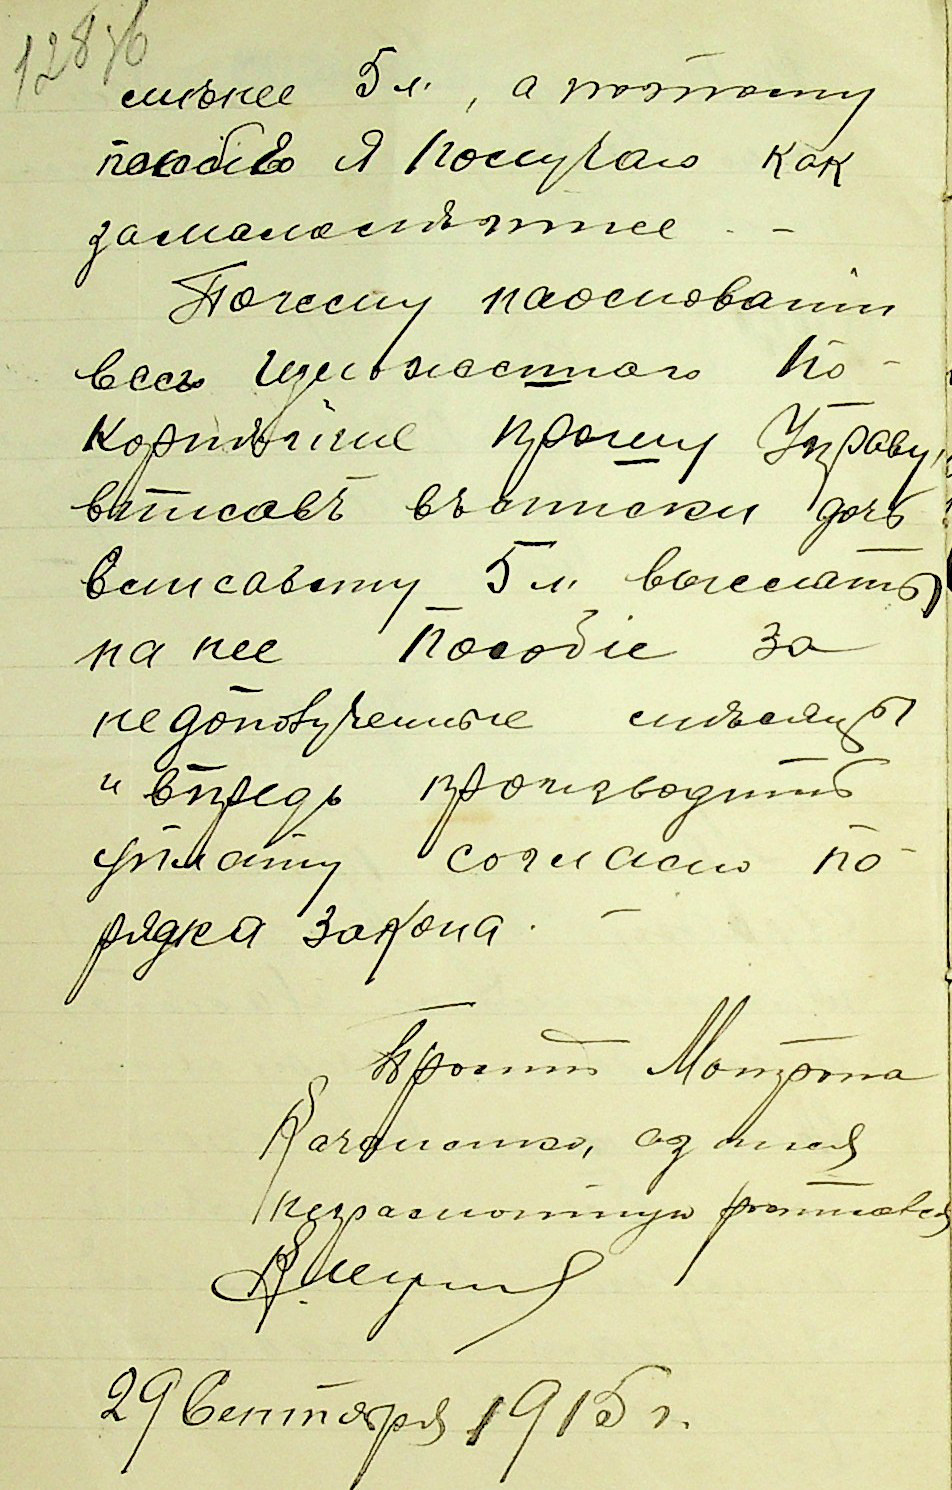 128 об
менѣе 5 л., а потому
пособiе я получаю как
замалолѣтнее. –
Почему наосновании
всего изложеннаго По-
корнѣйше прошу Управу,
вписавъ въ списки дочь
Елисавету 5 л. выслать
на нее Пособіе за
недополученные мѣсяцы
и впредь производить
уплату согласно по-
рядка закона. –
Проситъ Матрона
неграмотную росписался
29 Сентября 1915 г.